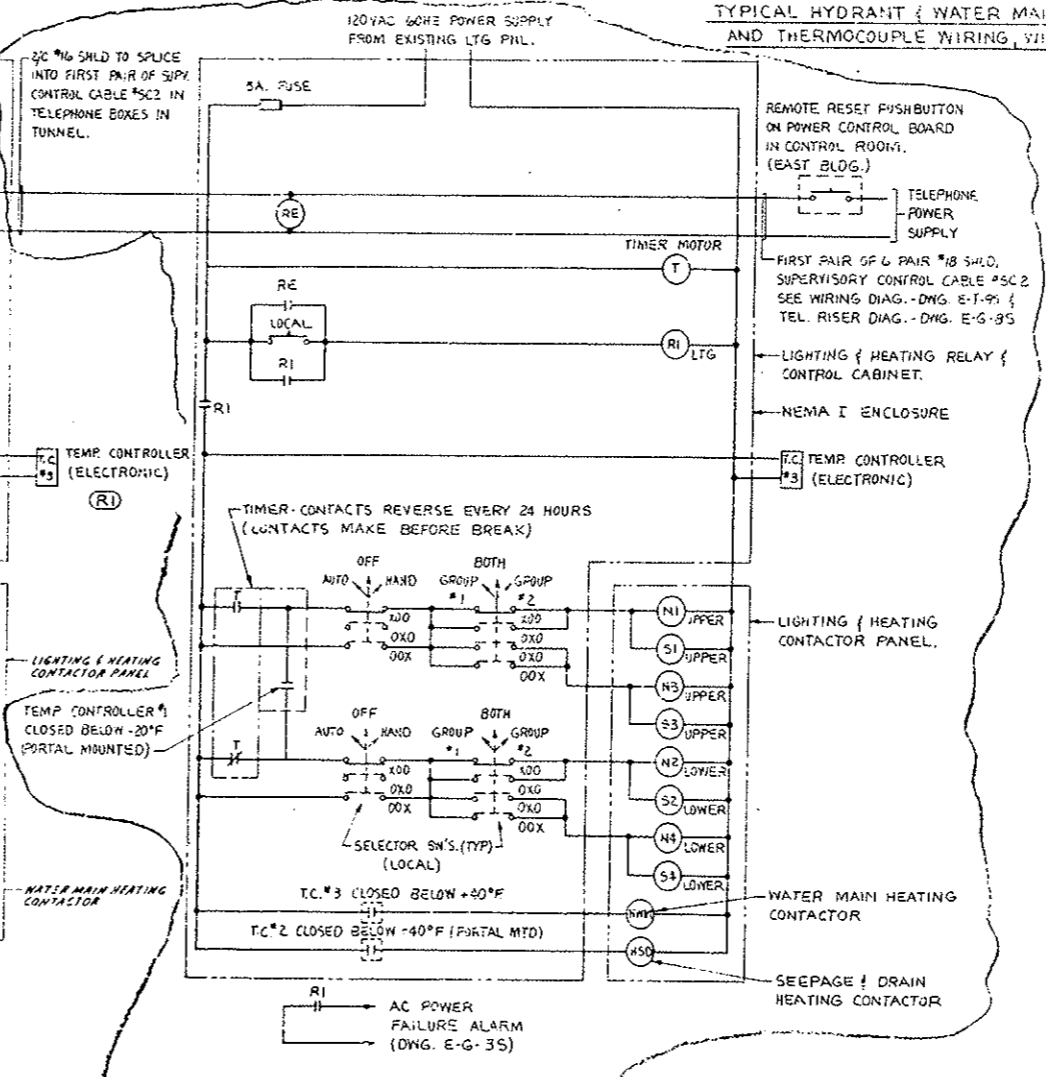 TYPICAL HYDRANT & WATER MAI
AND THERMOCOUPLE WIRING, WI
120VAC 60HZ POWER SUPPLY
FROM EXISTING LTG PNL.
2/C #16 SHLD TO SPLICE
INTO FIRST PAIR OF SUPV.
CONTROL CABLE #SC2 IN
TELEPHONE BOXES IN
TUNNEL.
5A. FUSE
REMOTE RESET PUSHBUTTON
ON POWER CONTROL BOARD
IN CONTROL ROOM.
(EAST BLDG.)
RE
TELEPHONE
POWER
SUPPLY
TIMER MOTOR
T
FIRST PAIR OF 6 PAIR #18 SHLD,
SUPERVISORY CONTROL CABLE #SC2
SEE WIRING DIAG.-DWG. E-T-95 &
TEL. RISER DIAG.-DWG. E-G-8S
RE
LOCAL
R1
R1 LTG
LIGHTING & HEATING RELAY &
CONTROL CABINET.
R1
NEMA I ENCLOSURE
T.C. #3 TEMP. CONTROLLER
(ELECTRONIC)
R1
T.C. #3 TEMP. CONTROLLER
(ELECTRONIC)
TIMER-CONTACTS REVERSE EVERY 24 HOURS
(CONTACTS MAKE BEFORE BREAK)
OFF
AUTO HAND
BOTH
GROUP #1 GROUP #2
T
X00
0X0
00X
X00
0X0
00X
N1 UPPER
S1 UPPER
N3 UPPER
S3 UPPER
LIGHTING & HEATING
CONTACTOR PANEL.
LIGHTING & HEATING
CONTACTOR PANEL
TEMP CONTROLLER #1
CLOSED BELOW -20°F
(PORTAL MOUNTED)
OFF
AUTO HAND
BOTH
GROUP #1 GROUP #2
T
X00
0X0
00X
X00
0X0
00X
N2 LOWER
S2 LOWER
N4 LOWER
S4 LOWER
SELECTOR SW'S.(TYP)
(LOCAL)
WATER MAIN HEATING
CONTACTOR
T.C.#3 CLOSED BELOW +40°F
WATER MAIN HEATING
CONTACTOR
T.C.#2 CLOSED BELOW -40°F (PORTAL MTD)
HSD
SEEPAGE & DRAIN
HEATING CONTACTOR
R1
AC POWER
FAILURE ALARM
(DWG. E-G-3S)